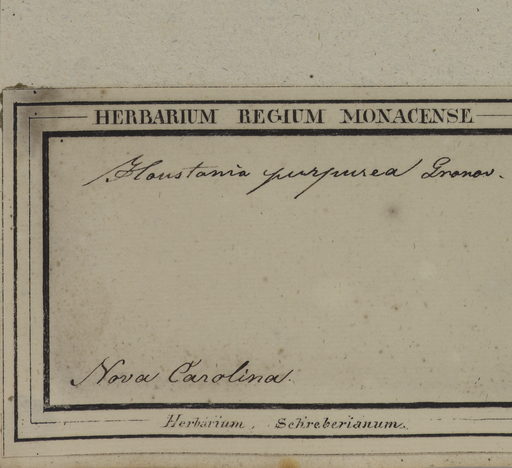 HERBARIUM REGIUM MONACENSE
Houstania purpurea Gronov.
Nova Carolina.
Herbarium. Schreberianum.